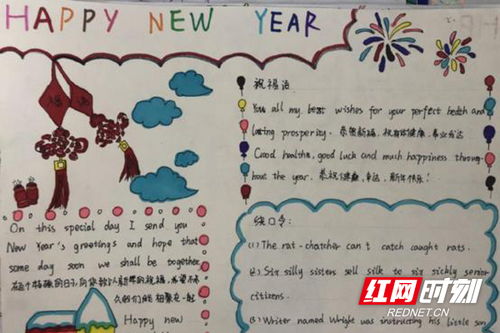 HAPPY NEW YEAR
祝福语
You all my best wishes for your perfect health and
lasting prosperity. 恭贺新禧，祝身体健康，事业发达
Good healthe, good luck and much happiness throug-
hout the year. 恭祝健康、幸运，新年快乐！
On this special day I send you
New Year's greetings and hope that
some day soon we shall be together.
在这个特殊的日子，向你致以新年的祝福，希望不
久我们能相聚在一起
Happy new
绕口令：
(1) The rat-chatcher can't catch caught rats.
(2) Six silly sisters sell silk to six sickly senior
citizens.
(3) Writer named Wright was instructing his little son
红网时刻
REDNET.CN